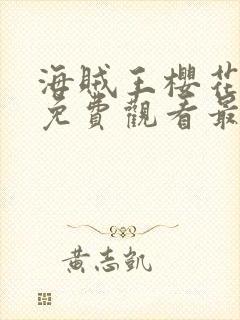 海賊王櫻花
免費觀看最
黃志凱